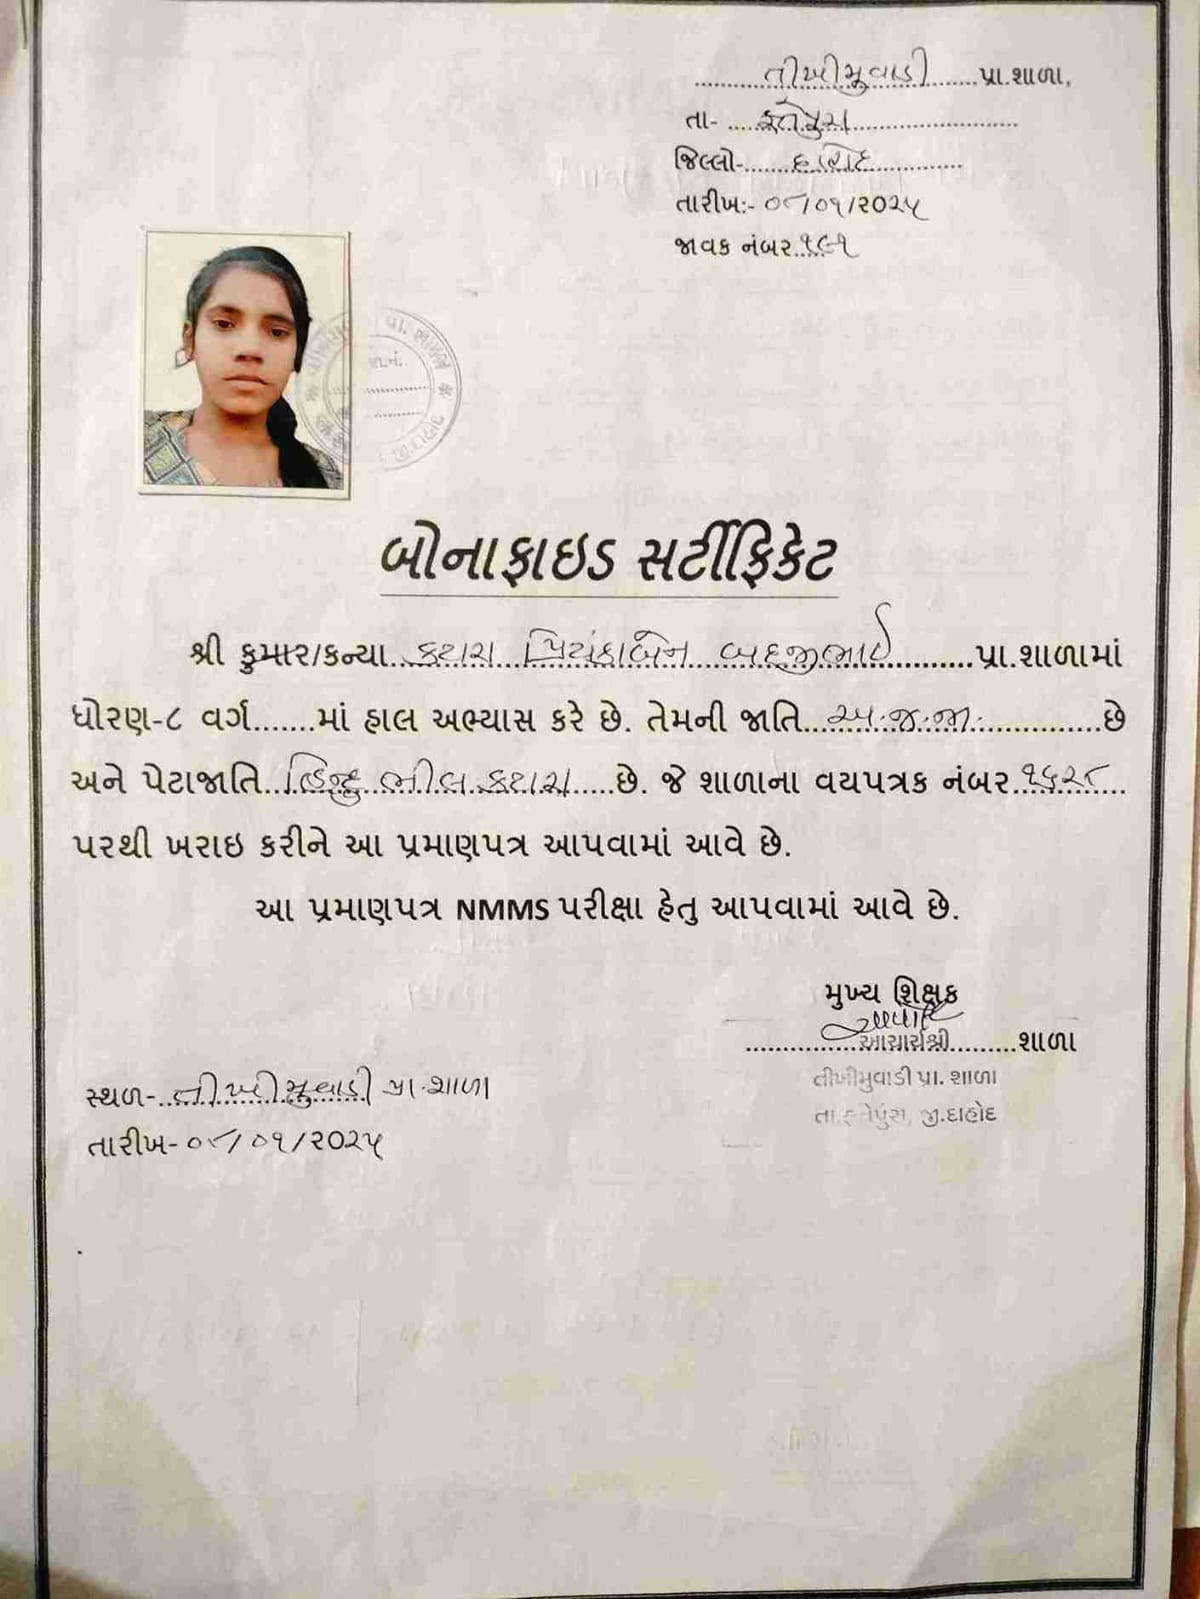 તીખીમુવાડી પ્રા.શાળા,
તા- ફતેપુરા
જિલ્લો- દાહોદ
તારીખ:- ૦૮/૦૧/૨૦૨૫
જાવક નંબર ૧૯૧
બોનાફાઇડ સર્ટીફિકેટ
શ્રી કુમાર/કન્યા કટારા પ્રિયંકાબેન બદજીભાઈ પ્રા.શાળામાં
ધોરણ-૮ વર્ગ.......માં હાલ અભ્યાસ કરે છે. તેમની જાતિ અ.જ.જા. છે
અને પેટાજાતિ હિન્દુ ભીલ કટારા છે. જે શાળાના વયપત્રક નંબર ૧૬૨૮
પરથી ખરાઇ કરીને આ પ્રમાણપત્ર આપવામાં આવે છે.
આ પ્રમાણપત્ર NMMS પરીક્ષા હેતુ આપવામાં આવે છે.
મુખ્ય શિક્ષક
આચાર્યશ્રી શાળા
તીખીમુવાડી પ્રા. શાળા
તા.ફતેપુરા, જી.દાહોદ
સ્થળ- તીખીમુવાડી પ્રા.શાળા
તારીખ- ૦૮/૦૧/૨૦૨૫